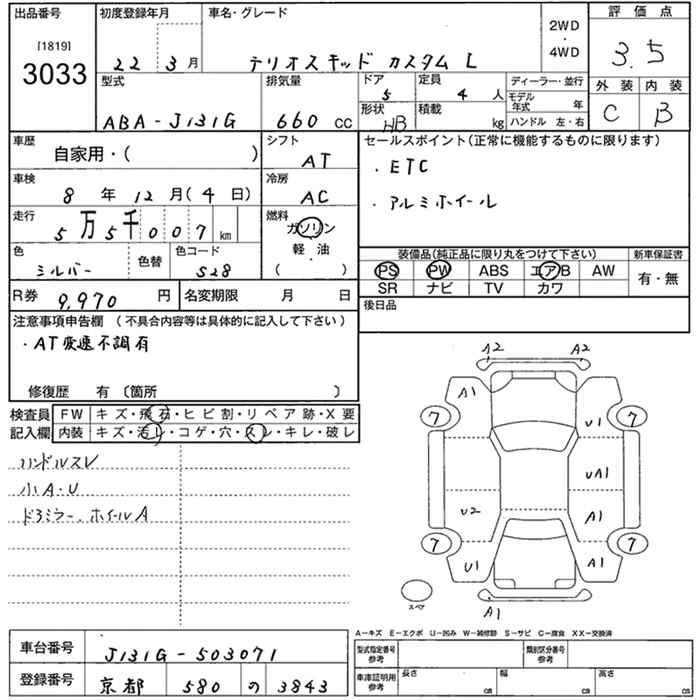 出品番号 初度登録年月 車名・グレード 2WD ・ 4WD 評価点
[1819] 3033 22 3月 テリオスキッド カスタム L 3.5
型式 排気量 ドア 5 定員 4 人 ディーラー・並行 外装 内装
ABA-J131G 660 cc 形状 HB 積載 kg モデル年式 年 C B
ハンドル 左・右
車歴 シフト セールスポイント(正常に機能するものに限ります)
自家用・( ) AT ・ETC
車検 冷房
8 年 12 月( 4 日) AC ・アルミホイール
走行 燃料
5万5千007 km ガソリン
色 色替 色コード 軽・油 装備品(純正品に限り丸をつけて下さい) 新車保証書
シルバー S28 ( ) PS PW ABS エアB AW 有・無
R券 9,970 円 名変期限 月 日 SR ナビ TV カワ
注意事項申告欄 (不具合内容等は具体的に記入して下さい) 後日品
・AT変速不調有
修復歴 有 〔箇所 〕
検査員 FW キズ・飛石・ヒビ割・リペア跡・X要
記入欄 内装 キズ・汚レ・コゲ・穴・スレ・キレ・破レ
ハンドルスレ
小A・U
ドアミラー、ホイールA
A2 A2
A1
7 U1 7
UA1
U2 A1
7 7
U1 A1
スペア A1
A-キズ E-エクボ U-凹み W-補修跡 S-サビ C-腐食 XX-交換済
車台番号 J131G-503071 型式指定番号 参考 類別区分番号 参考
登録番号 京都 580 の 3843 車庫証明用 参考 長さ cm 幅 cm 高さ cm